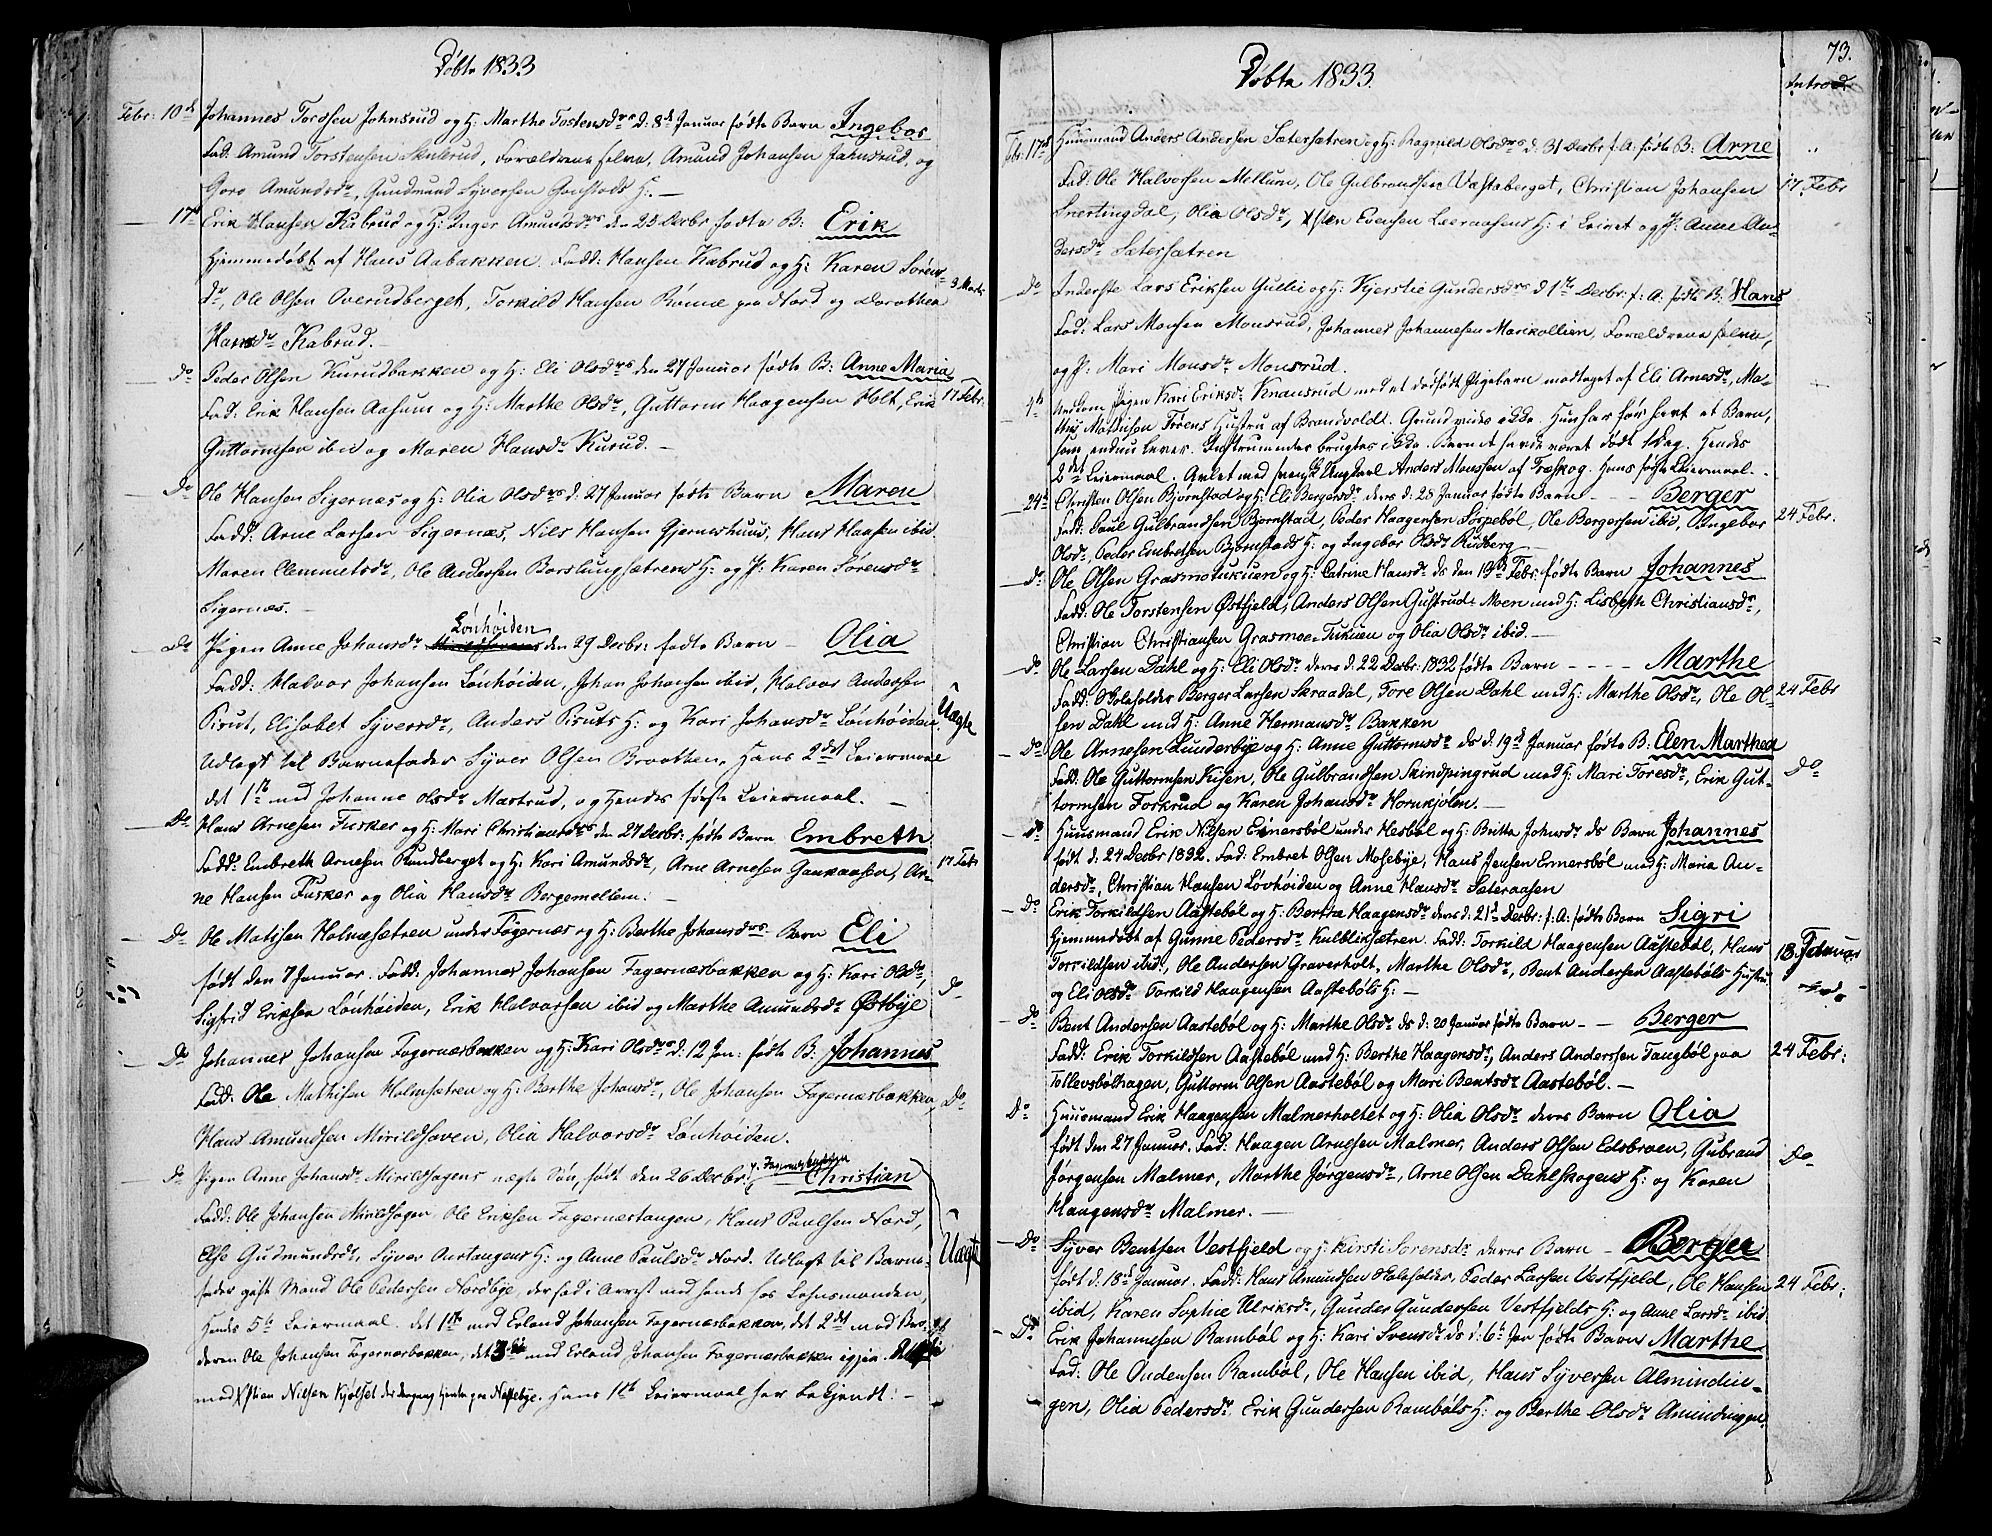 Döbte 1833
Febr: 10de Johannes Torssen Johnsrud og H: Marthe Tostensdrs d: 8de Januar födte Barn Ingebor
Fad: Amund Torstensen Skulerud, Forældrene selve, Amund Johansen Johnsrud, og
Goro Amundsdr, Gundmund Syversen H: —
— 17de Erik Hansen Kabrud og H: Inger Amundsdrs den 23 Decbr födte B: Erik
Hjemmedöbt af Hans Aabakken. Fadd: Hansen Kabrud og H: Karen Sören-
dr, Ole Olsen Overudberget, Torkild Hansen Römæ paa Nord og Dorothea 3 Marts
Hansdr Kabrud. —
— Do Peder Olsen Kurudbakken og H: Eli Olsdrs den 27 Januar födte B: Anne Maria
Fad: Erik Hansen Aasum og H: Marthe Olsdr, Guttorm Haagensen Holt, Erik 17 Febr:
Guttormsen ibid og Maren Hansdr Kurud. —
— Do Ole Hansen Sigernæs og H: Olia Olsdrs d: 27 Januar födte Barn Maren
Fadd: Arne Larsen Sigernæs, Nils Hansen Gjerneshuus, Hans Hansen ibid
Maren Clemmetsdr, Ole Andersen Borslungsætrens H: og P: Karen Sörensdr
Sigernæs. —
Lönhöiden
— Do Pigen Anne Johansdr den 29 Decbr: födte Barn — Olia
Fadd: Halvor Johansen Lönhöiden, Johan Johansen ibid, Halvor Andersen
Pirut, Elisabet Syversdr, Anders Piruts H: og Kari Johansdr Lönhöiden Uægte
Udlagt til Barnefader Syver Olsen Braathen, Hans 2det Leiermaal
det 1te med Johanne Olsdr Mastrud, og Hendes förste Leiermaal. —
— Do Hans Arnesen Fusker og H: Mari Christiansdrs den 27 Decbr: födte Barn Embreth
Fadd: Embreth Arnesen Rundberget og H: Kari Amundsdr, Arne Arnesen Gaukaasen, Ar- 17 Febr
ne Hansen Fusker og Olia Hansdr Bergemellem. —
— Do Ole Matisen Holmsætren under Fagernæs og H: Berthe Johansdrs Barn Eli
födt den 7 Januar. Fadd: Johannes Johansen Fagernæsbakken og H: Kari Olsdr, Do
Sigfrid Eriksen Lönhöiden, Erik Halvorsen ibid og Marthe Amundsdr Östbye
— Do Johannes Johansen Fagernæsbakken og H: Kari Olsdrs d: 12 Jan: födte B: Johannes
Fadd: Ole Mathisen Holmsætren og H: Berthe Johansdr, Ole Johansen Fagernæsbakken, Do
Hans Amundsen Mirildhaven, Olia Halvorsdr Lönhöiden.
— Do Pigen Anne Johansdr Mirildhagens uægte Sön, födt den 26 Decbr: Christian
Fadd: Ole Johansen Mirildhagen Ole Eriksen Fagernestangen, Hans Paulsen Nord,
Else Gudmundsdr, Syver Aastangens H: og Anne Paulsdr Nord. Udlagt til Barne- Uægte
fader gift Mand Ole Pedersen Nordbye, der sad i Arrest med hende hos Lehnsmanden,
Hendes 5te Leiermaal. det 1te med Erland Johansen Fagernæsbakken, det 2det med Bro-
deren Ole Johansen Fagernæsbakken, det 3die med Erland Johansen Fagernæsbakken igjen.
med Xstian Nilsen Kjölset der dengang tjente paa Nestebye. Hans 1te Leiermaal saa bekjendt: —
Döbte 1833.
73.
Introd.
Febr: 17de Huusmand Anders Andersen Sætersætren og H: Ragnild Olsdrs d: 31 Decbr f. A. födte B: Arne
Fad: Ole Halvorsen Mellum, Ole Gulbrandsen Væstaberget, Christian Johansen 17 Febr
Snertingdal, Olia Olsdr, Xsten Evensen Leeraasens H: i Leiret og P: Anne An-
dersdr Sætersætren
— Do Inderste Lars Eriksen Gullie og H: Kjerstie Gundersdrs d 1te Decbr: f: A. födte B: Hans
Fad: Lars Monsen Monsrud, Johannes Johannesen Marikollien, Forældrene selve,
og P: Mari Monsdr Monsrud.
4de Ankom Pigen Kari Eriksdr Knausrud med et dödfödt Pigebarn modtaget af Eli Arnesdr, Ma-
this Mathisen Törens Hustru af Brandvoldt. Grund vides ikke. Hun har för havt et Barn,
som endnu lever. Instrumenter brugtes ikke. Barnet havde været dödt 1 Dag. Hendes
2det Leiermaal. Avlet med svensk Ungkarl Anders Monssen af Træskog. Hans förste Leiermaal.
— 24de Christen Olsen Björnstad og H: Eli Bergersdr deres d: 28 Januar födte Barn — — Berger
Fadd: Paul Gulbrandsen Björnstad, Peder Haagensen Sorpeböl, Ole Bergersen ibid, Ingebor 24 Febr.
Olsdr, Peder Embretsen Björnstads H: og Ingebor Olsdr Rudberg —
— Do Ole Olsen Grasmotukuen og H: Catrine Hansdr ds den 19de Febr: födte Barn Johannes
Fadd: Ole Torstensen Östfjeld, Anders Olsen Gustrud Moen med H: Lisbeth Christiansdr,
Christian Christiansen Grasmoe-Tukuen og Olia Olsdr ibid. —
— Do Ole Larsen Dahl og H: Eli Olsdr deres d: 22 Decbr: 1832 födte Barn — — — Marthe
Fadd: Skoleholder Berger Larsen Skraadal, Tore Olsen Dahl med H: Marthe Olsdr, Ole Ol- 24 Febr
sen Dahl med H: Anne Hermansdr Bakken
— Do Ole Arnesen Lunderbye og H: Anne Guttormsdr ds d: 19de Januar födte B: Elen Marthea
Fadd: Ole Guttormsen Kisen, Ole Gulbrandsen Skindpingrud med H: Mari Toresdr, Erik Gut- Do
tormsen Torkrud og Karen Johansdr Hornkjölen. —
— Do Huusmand Erik Nilsen Ermersböl under Hesböl og H: Britta Johnsdr ds Barn Johannes
födt d: 24 Decbr 1832. Fad: Embret Olsen Mosebye, Hans Jensen Ermersböl med H: Maria An-
dersdr, Christian Hansen Lövhöiden og Anne Hansdr Sæteraasen
— Do Erik Torkildsen Aasteböl og H: Berthe Haagensdr deres d: 21de Decbr: f: A: födte Barn Sigri
Hjemmedöbt af Gunne Pedersdr Kulbliksætren. Fadd: Torkild Haagensen Aasteböl, Hans 18 Februar
Torkildsen ibid, Ole Andersen Graverholt, Marthe Olsdr, Bent Andersen Aasteböls Hustru
og Eli Olsdr Torkild Haagensen Aasteböls H: —
— Do Bent Andersen Aasteböl og H: Marthe Olsdr ds d: 20 Januar födte Barn — — Berger
Fadd: Erik Torkildsen Aasteböl med H: Berthe Haagensdr, Anders Andersen Taugböl paa 24 Febr:
Tollevsbölhagen, Guttorm Olsen Aasteböl og Mari Bentsdr Aasteböl. —
Do Huusmand Erik Haagensen Malmerholtet og H: Olia Olsdr deres Barn Olia
födt den 27 Januar. Fad: Haagen Arnesen Malmer, Anders Olsen Edsbraaen, Gubrand Do
Jörgensen Malmer, Marthe Jörgensdr, Arne Olsen Dahlskogens H: og Karen
Haagensdr Malmer. —
— Do Syver Bentsen Vestfjeld og H: Kirsti Sörensdr deres Barn — Berger
födt d: 18de Januar. Fadd: Hans Amundsen Skoleholder, Peder Larsen Vestfjeld, Ole Hansen 24 Febr:
ibid, Karen Sophie Ulriksdr, Gunder Gundersen Vestfjelds H: og Anne Larsdr ibid
— Do Erik Johannesen Ramböl og H: Kari Svensdr ds d: 6te Jan födte Barn Marthe
Fad: Ole Andersen Ramböl, Ole Hansen ibid, Hans Syversen Almindin-
gen, Olia Pedersdr, Erik Gundersen Ramböls H: og Berthe Olsdr Amindingen.